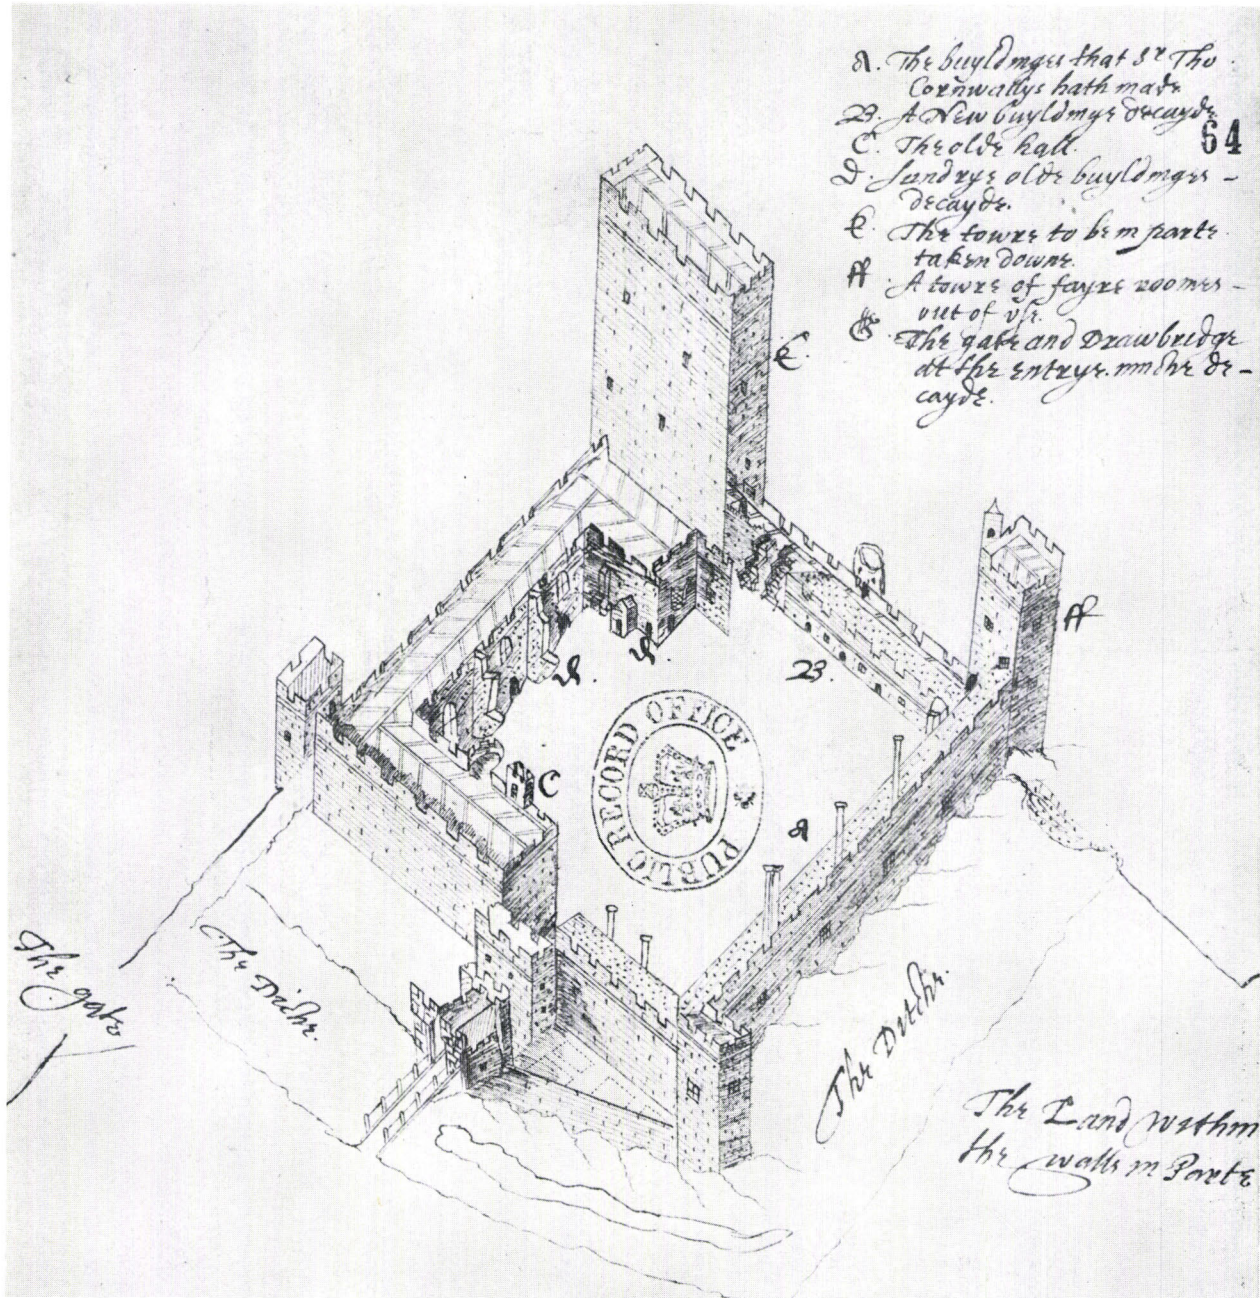 A. The buyldinges that Sr Tho
Cornwallys hath made
B. A New buyldinge decayde
64
C. The olde hall.
D. Sundrye olde buyldinges -
decayde.
E. The towre to be in parte
taken downe.
ff A towre of fayre roomes -
out of use.
G The gate and Drawbridge
at the entrye. muche de-
cayde.
E.
ff
D.
D.
B.
C
A
PUBLIC RECORD OFFICE
The gate
The Diche.
The Ditche.
The Land within
the walls in Parte